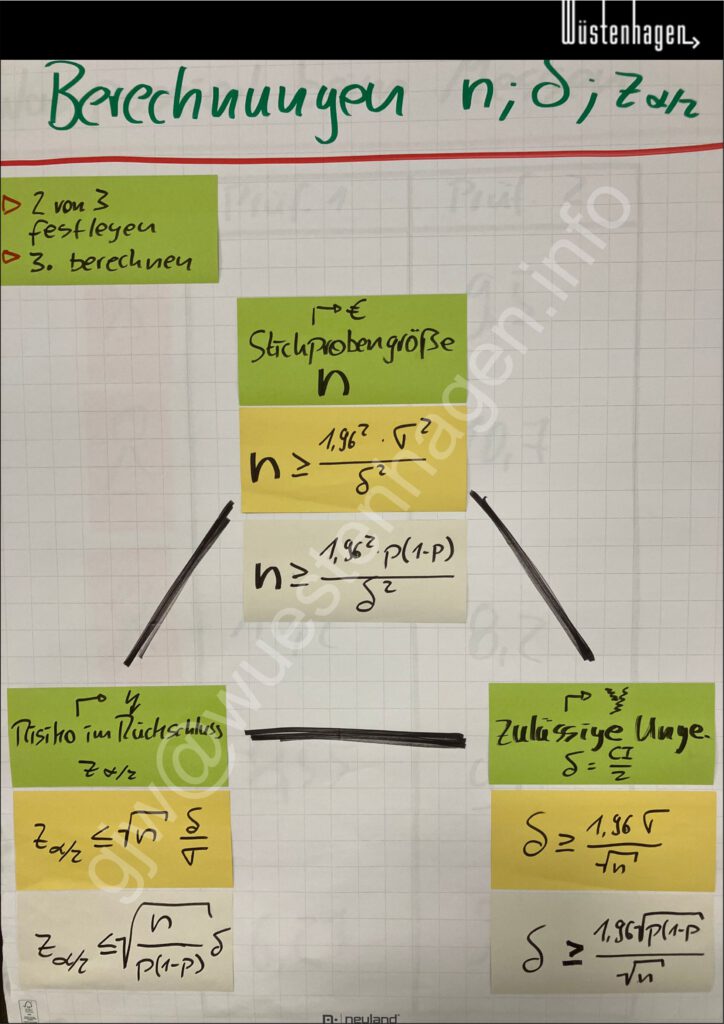 Wüstenhagen
Berechnungen n; δ; z α/2
▷ 2 von 3
festlegen
▷ 3. berechnen
↱ €
Stichprobengröße
n
n ≥ 1,96² · σ² / δ²
n ≥ 1,96² · p(1-p) / δ²
Risiko im Rückschluss
z α/2
z α/2 ≤ √n δ/σ
z α/2 ≤ √(n / p(1-p)) δ
Zulässige Unge.
δ = CI/2
δ ≥ 1,96 σ / √n
δ ≥ 1,96 √p(1-p / √n
gjw@wuestenhagen.info
neuland